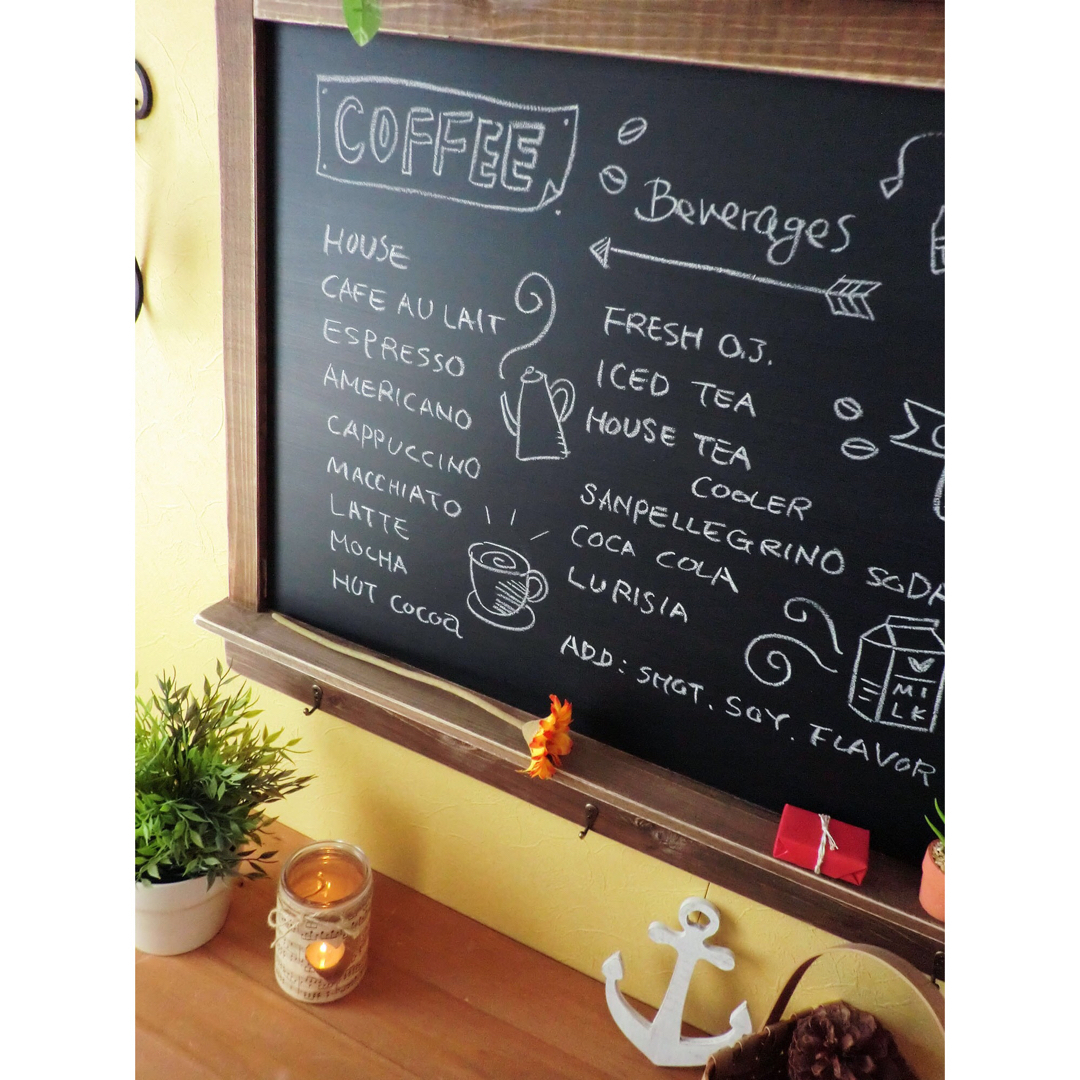 COFFEE
HOUSE
CAFE AU LAIT
ESPRESSO
AMERICANO
CAPPUCCINO
MACCHIATO
LATTE
MOCHA
HOT COCOA
Beverages
FRESH O.J.
ICED TEA
HOUSE TEA
COOLER
SANPELLEGRINO SODA
COCA COLA
LURISIA
ADD: SHOT. SOY. FLAVOR
MI
LK